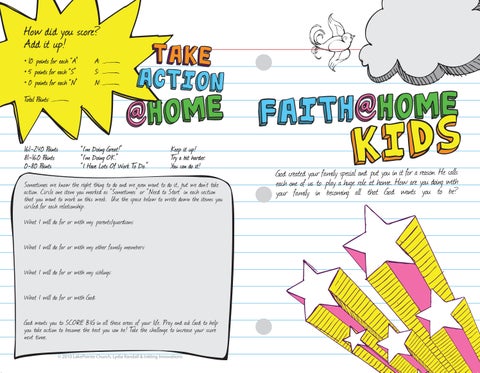 How did you score?
Add it up!
• 10 points for each "A" A ____
• 5 points for each "S" S ____
• 0 points for each "N" N ____
Total Points ____
TAKE
ACTION
@HOME
161-240 Points "I'm Doing Great!" Keep it up!
81-160 Points "I'm Doing OK" Try a bit harder
0-80 Points "I Have Lots Of Work To Do" You can do it!
Sometimes we know the right thing to do and we even want to do it, but we don't take
action. Circle one item you marked as "Sometimes" or "Need to Start" in each section
that you want to work on this week. Use the space below to write down the items you
circled for each relationship.
What I will do for or with my parents/guardians:
What I will do for or with my other family members:
What I will do for or with my siblings:
What I will do for or with God:
God wants you to SCORE BIG in all these areas of your life. Pray and ask God to help
you take action to become the best you can be! Take the challenge to increase your score
next time.
© 2012 LakePointe Church, Lydia Randall & Inkling Innovations
FAITH@HOME
KIDS
God created your family special and put you in it for a reason. He calls
each one of us to play a huge role at home. How are you doing with
your family in becoming all that God wants you to be?